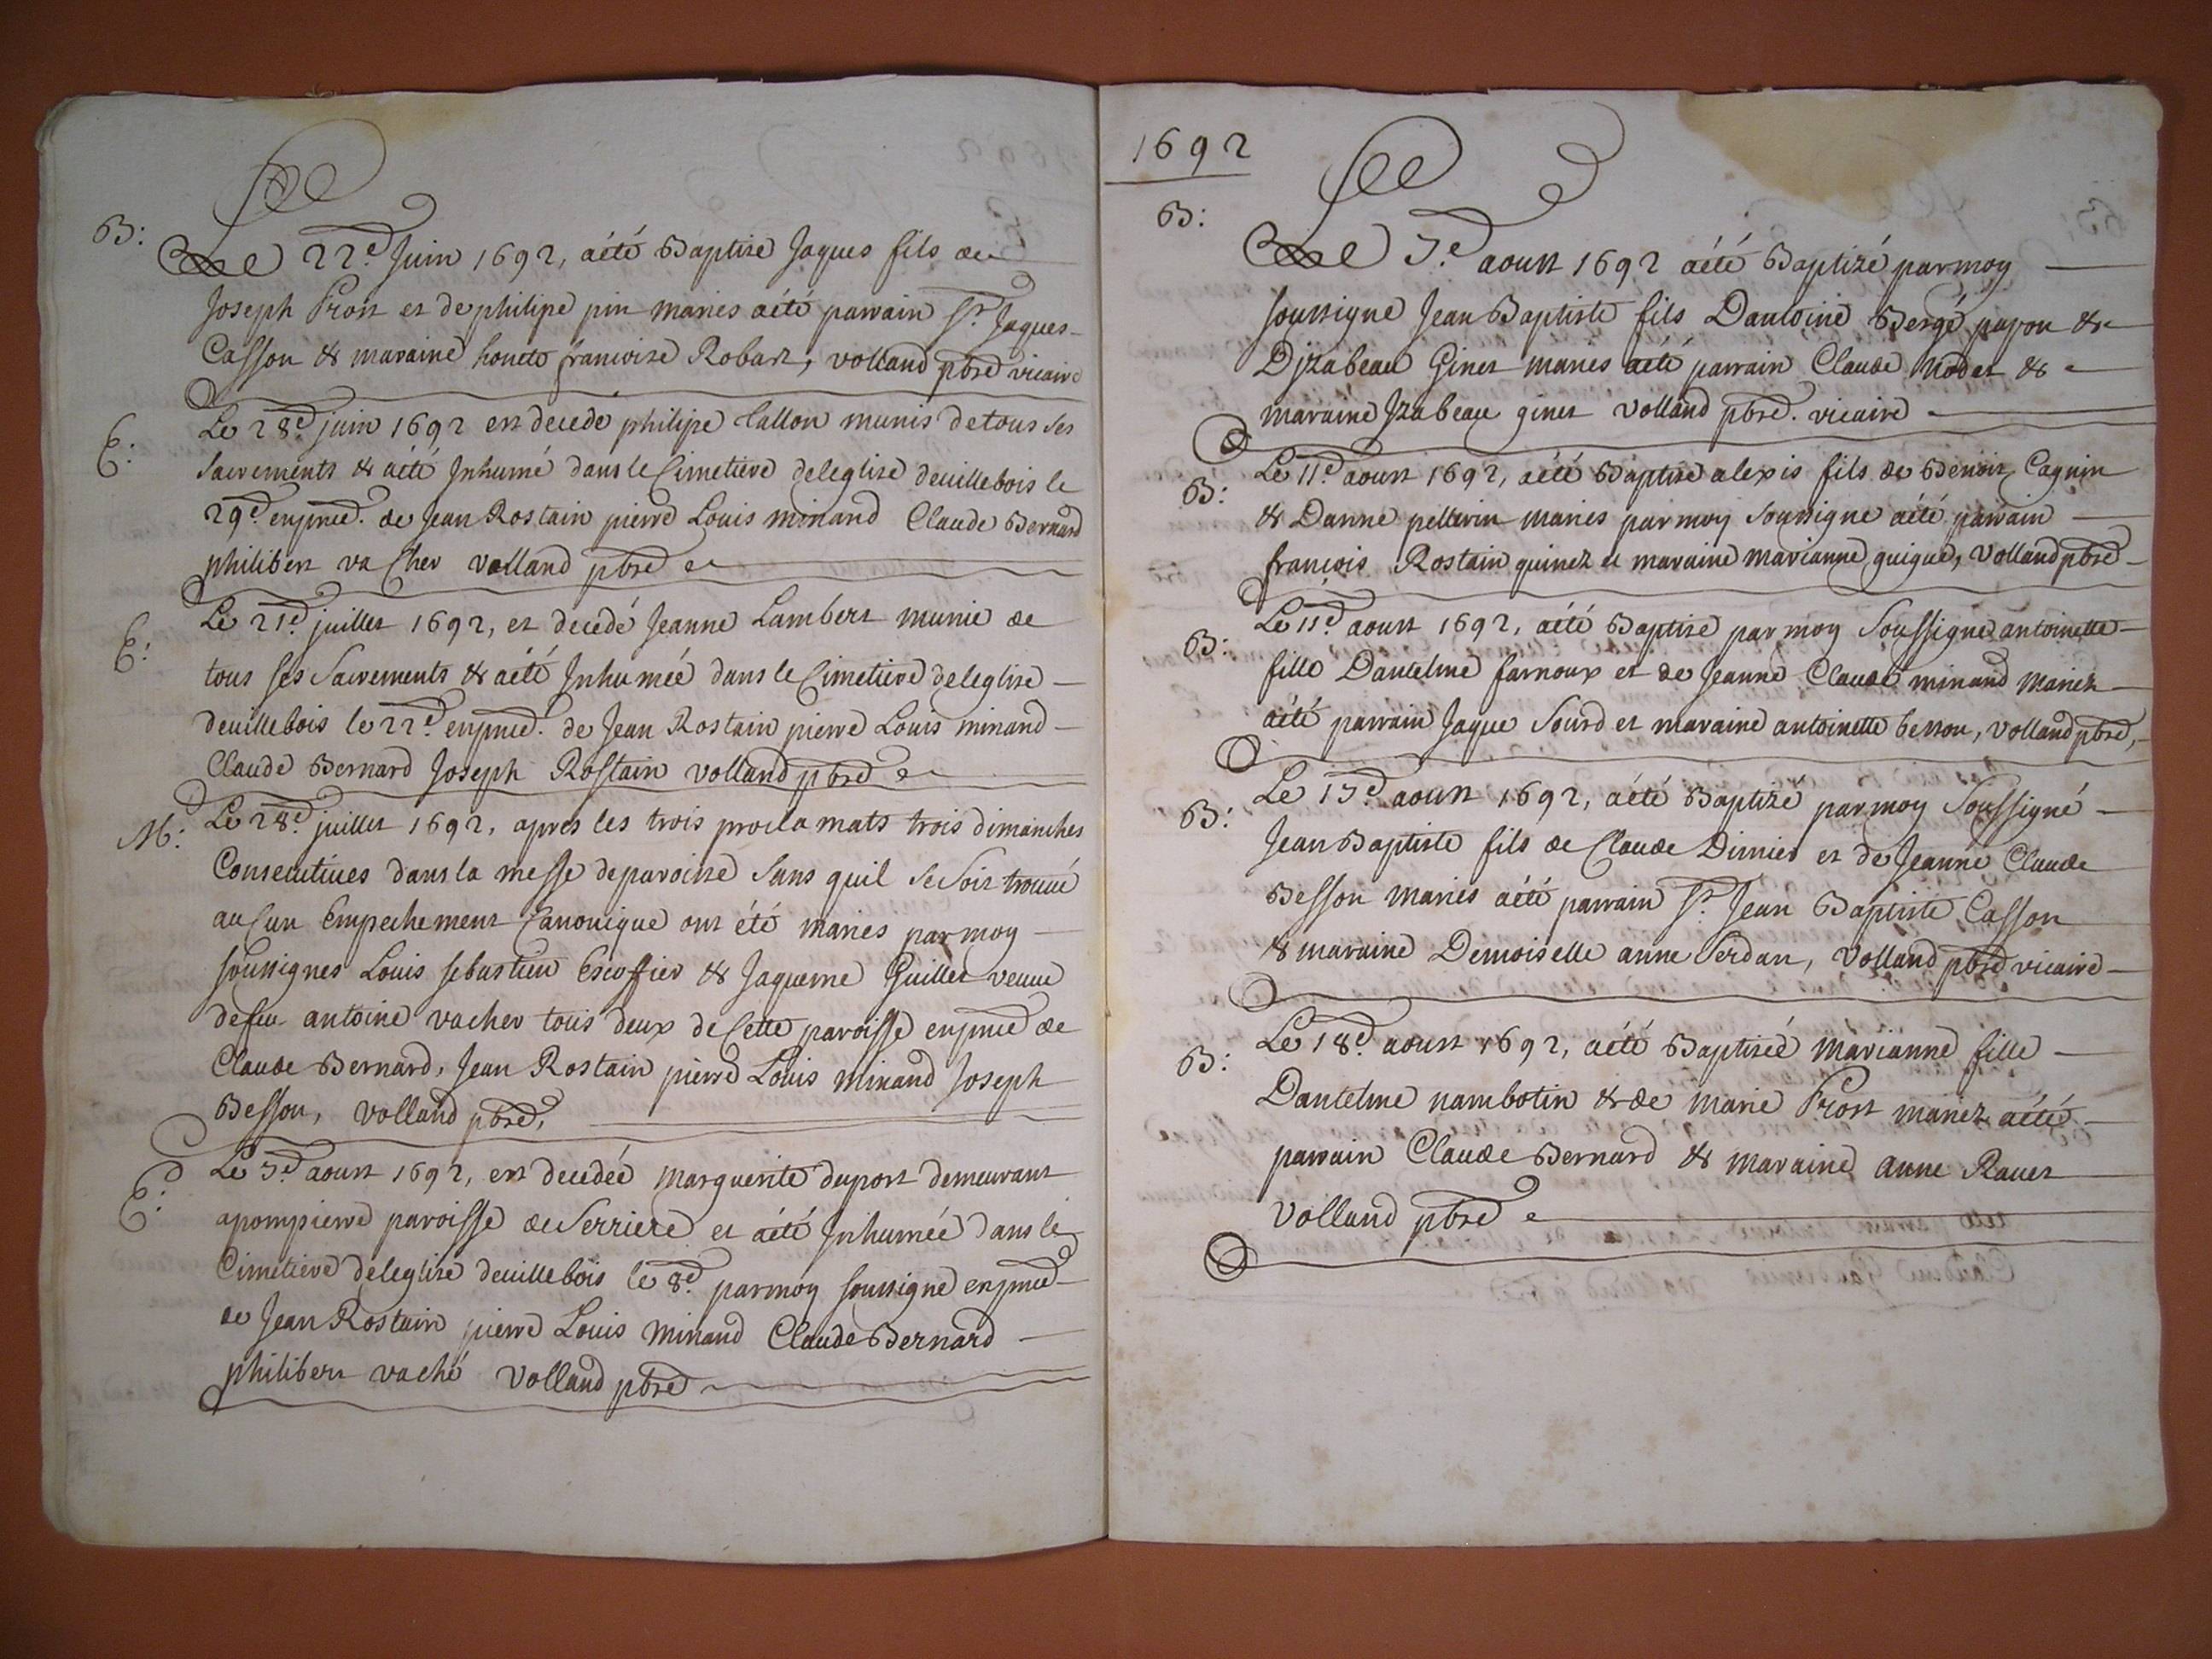 B:
Le 22.e Juin 1692, aété Baptise Jaques fils de
Joseph Prost et de philipe pin maries aété parrain Sr. Jaques
Casson & maraine honete francoise Robart, volland pbre vicaire
E:
Le 28.e juin 1692 est decedé philipe Callon munis detous ses
Sacrements & aété Jnhumé dans le Cimetiere deleglise deuillebois le
29.e enpnce. de Jean Rostain pierre Louis minand Claude Bernard
philibert vacher volland pbre
E:
Le 21.e juillet 1692, et decedé Jeanne Lambert munie de
tous ses Sacrements & aété Jnhumée dans le Cimetiere deleglise
deuillebois le 22.e enpnce. de Jean Rostain pierre Louis minand
Claude Bernard Joseph Rostain volland pbre
M:
Le 28.e juillet 1692, apres les trois proclamats trois dimanches
Consecutiues dans la messe deparoisse Sans quil se Soit trouué
auCun Empechement Canonique ont été maries par moy
soussignes Louis sebastien Escoffier & Jaqueme Guillet veuue
defeu antoine vacher tous deux de Cette paroisse enpnce de
Claude Bernard, Jean Rostain pierre Louis minand Joseph
Besson, volland pbre,
E:
Le 7.e aoust 1692, est decedée marguerite duport demeurant
apompierre paroisse de Serriere et aété Jnhumée dans le
Cimetiere deleglise deuillebois le 8.e parmoy soussigne enpnce
de Jean Rostain pierre Louis minand Claude Bernard
philibert vaché volland pbre
1692
B:
Le 7.e aoust 1692 aété Baptizé parmoy
soussigne Jean Baptiste fils Dantoine Bergé papon &
Djzabeau Ginet maries aété parrain Claude Nodet &
maraine Jzabeau ginet volland pbre. vicaire
B:
Le 11.e aoust 1692, aété Baptise alexis fils de Benoit Cagnin
& Danne pellerin maries par moy soussigne aété parrain
francois Rostain quinez et maraine marianne guigue, volland pbre
B:
Le 11.e aoust 1692, aété Baptise par moy Soussigne antoinette
fille Dantelme farnoux et de Jeanne Claude minand mariez
aété parrain Jaque Sourd et maraine antoinette besson, volland pbre,
B:
Le 17.e aoust 1692, aété Baptizé par moy Soussigné
Jean Baptiste fils de Claude Dimier et de Jeanne Claude
Besson maries aété parrain Sr. Jean Baptiste Casson
& maraine Demoiselle anne Serdan, volland pbre vicaire
B:
Le 18.e aoust 1692, aété Baptiseé Marianne fille
Dantelme nambotin & de marie Prost mariez aété
parrain Claude Bernard & maraine anne Rauet
volland pbre